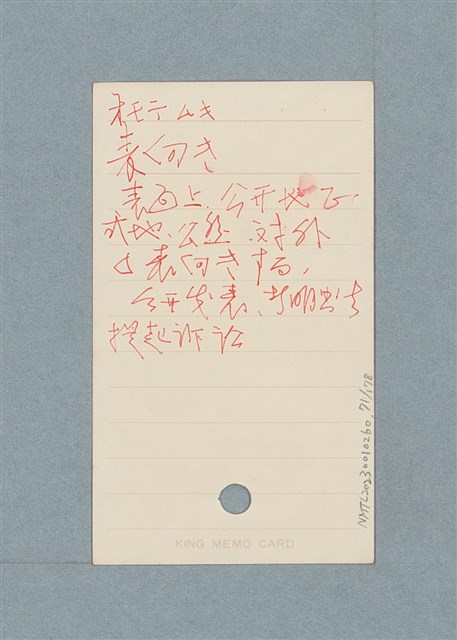 オモテムキ
表向き
表面上、公开地、正
式地、公然、对外
表向きする,
公开发表、
提起诉讼
KING MEMO CARD
NMTL20230010260. 71/178